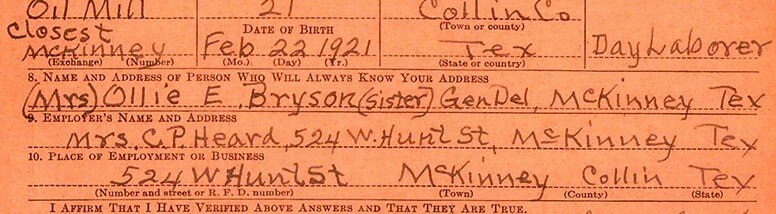 Oil Mill 21 Collin Co
Closest DATE OF BIRTH (Town or county)
McKinney Feb 22 1921 Tex Day Laborer
(Exchange) (Number) (Mo.) (Day) (Yr.) (State or country)
8. NAME AND ADDRESS OF PERSON WHO WILL ALWAYS KNOW YOUR ADDRESS
(Mrs) Ollie E. Bryson (sister) Gen Del, McKinney Tex
9. EMPLOYER'S NAME AND ADDRESS
Mrs. C.P. Heard, 524 W. Hunt St, McKinney Tex
10. PLACE OF EMPLOYMENT OR BUSINESS
524 W Hunt St McKinney Collin Tex
(Number and street or R. F. D. number) (Town) (County) (State)
I AFFIRM THAT I HAVE VERIFIED ABOVE ANSWERS AND THAT THEY ARE TRUE.